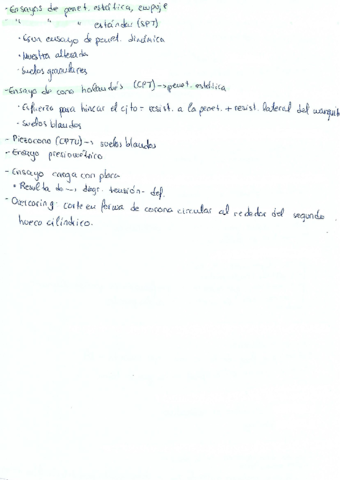 - Ensayos de penet. estática, empuje
" " " estándar (SPT)
· Es un ensayo de penet. dinámica
· Muestra alterada
· Suelos granulares
- Ensayo de cono holandés (CPT) -> penet. estática
· Esfuerzo para hincar el cjto = resist. a la penet. + resist. lateral del manguito
· Suelos blandos
- Piezocono (CPTU) -> suelos blandos
- Ensayo presiométrico
- Ensayo carga con placa
· Resultado -> diagr. tensión - def.
- Overcoring: corte en forma de corona circular alrededor del segundo
hueco cilíndrico.